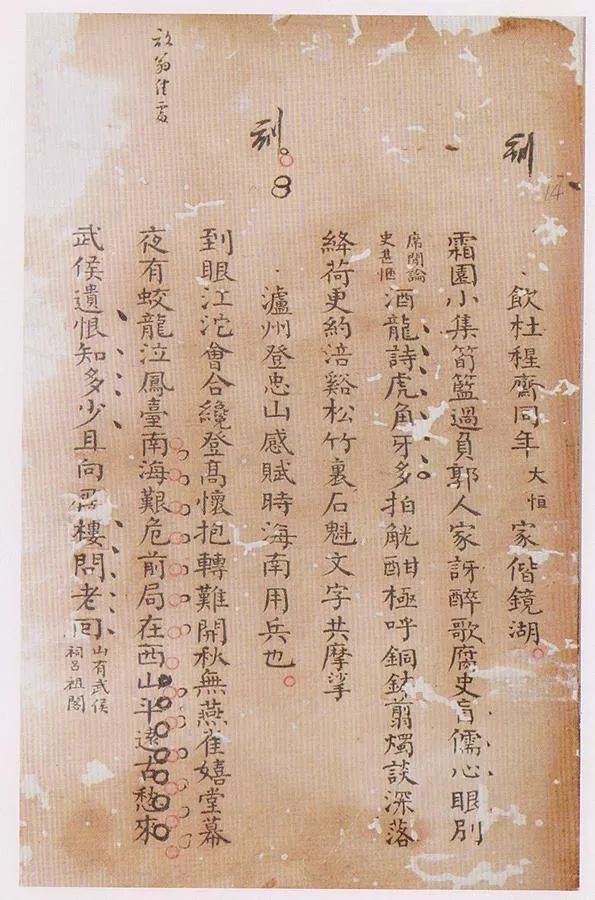 14
刻
飲杜稺齋同年大恒家偕鏡湖
霜園小集筍籃過負郭人家訝醉歌腐史盲儒心眼別
席間論
史甚愜
酒龍詩虎角牙多拍觥酣極呼銅鉢翦燭談深落
絳荷更約涪谿松竹裏石魁文字共摩挲
刻
瀘州登忠山感賦時海南用兵也
到眼江沱會合纔登高懷抱轉難開秋無燕雀嬉堂幕
夜有蛟龍泣鳳臺南海艱危前局在西山平遠古愁來
武侯遺恨知多少且向層樓問老回
山有武侯
祠呂祖閣
放翁佳處